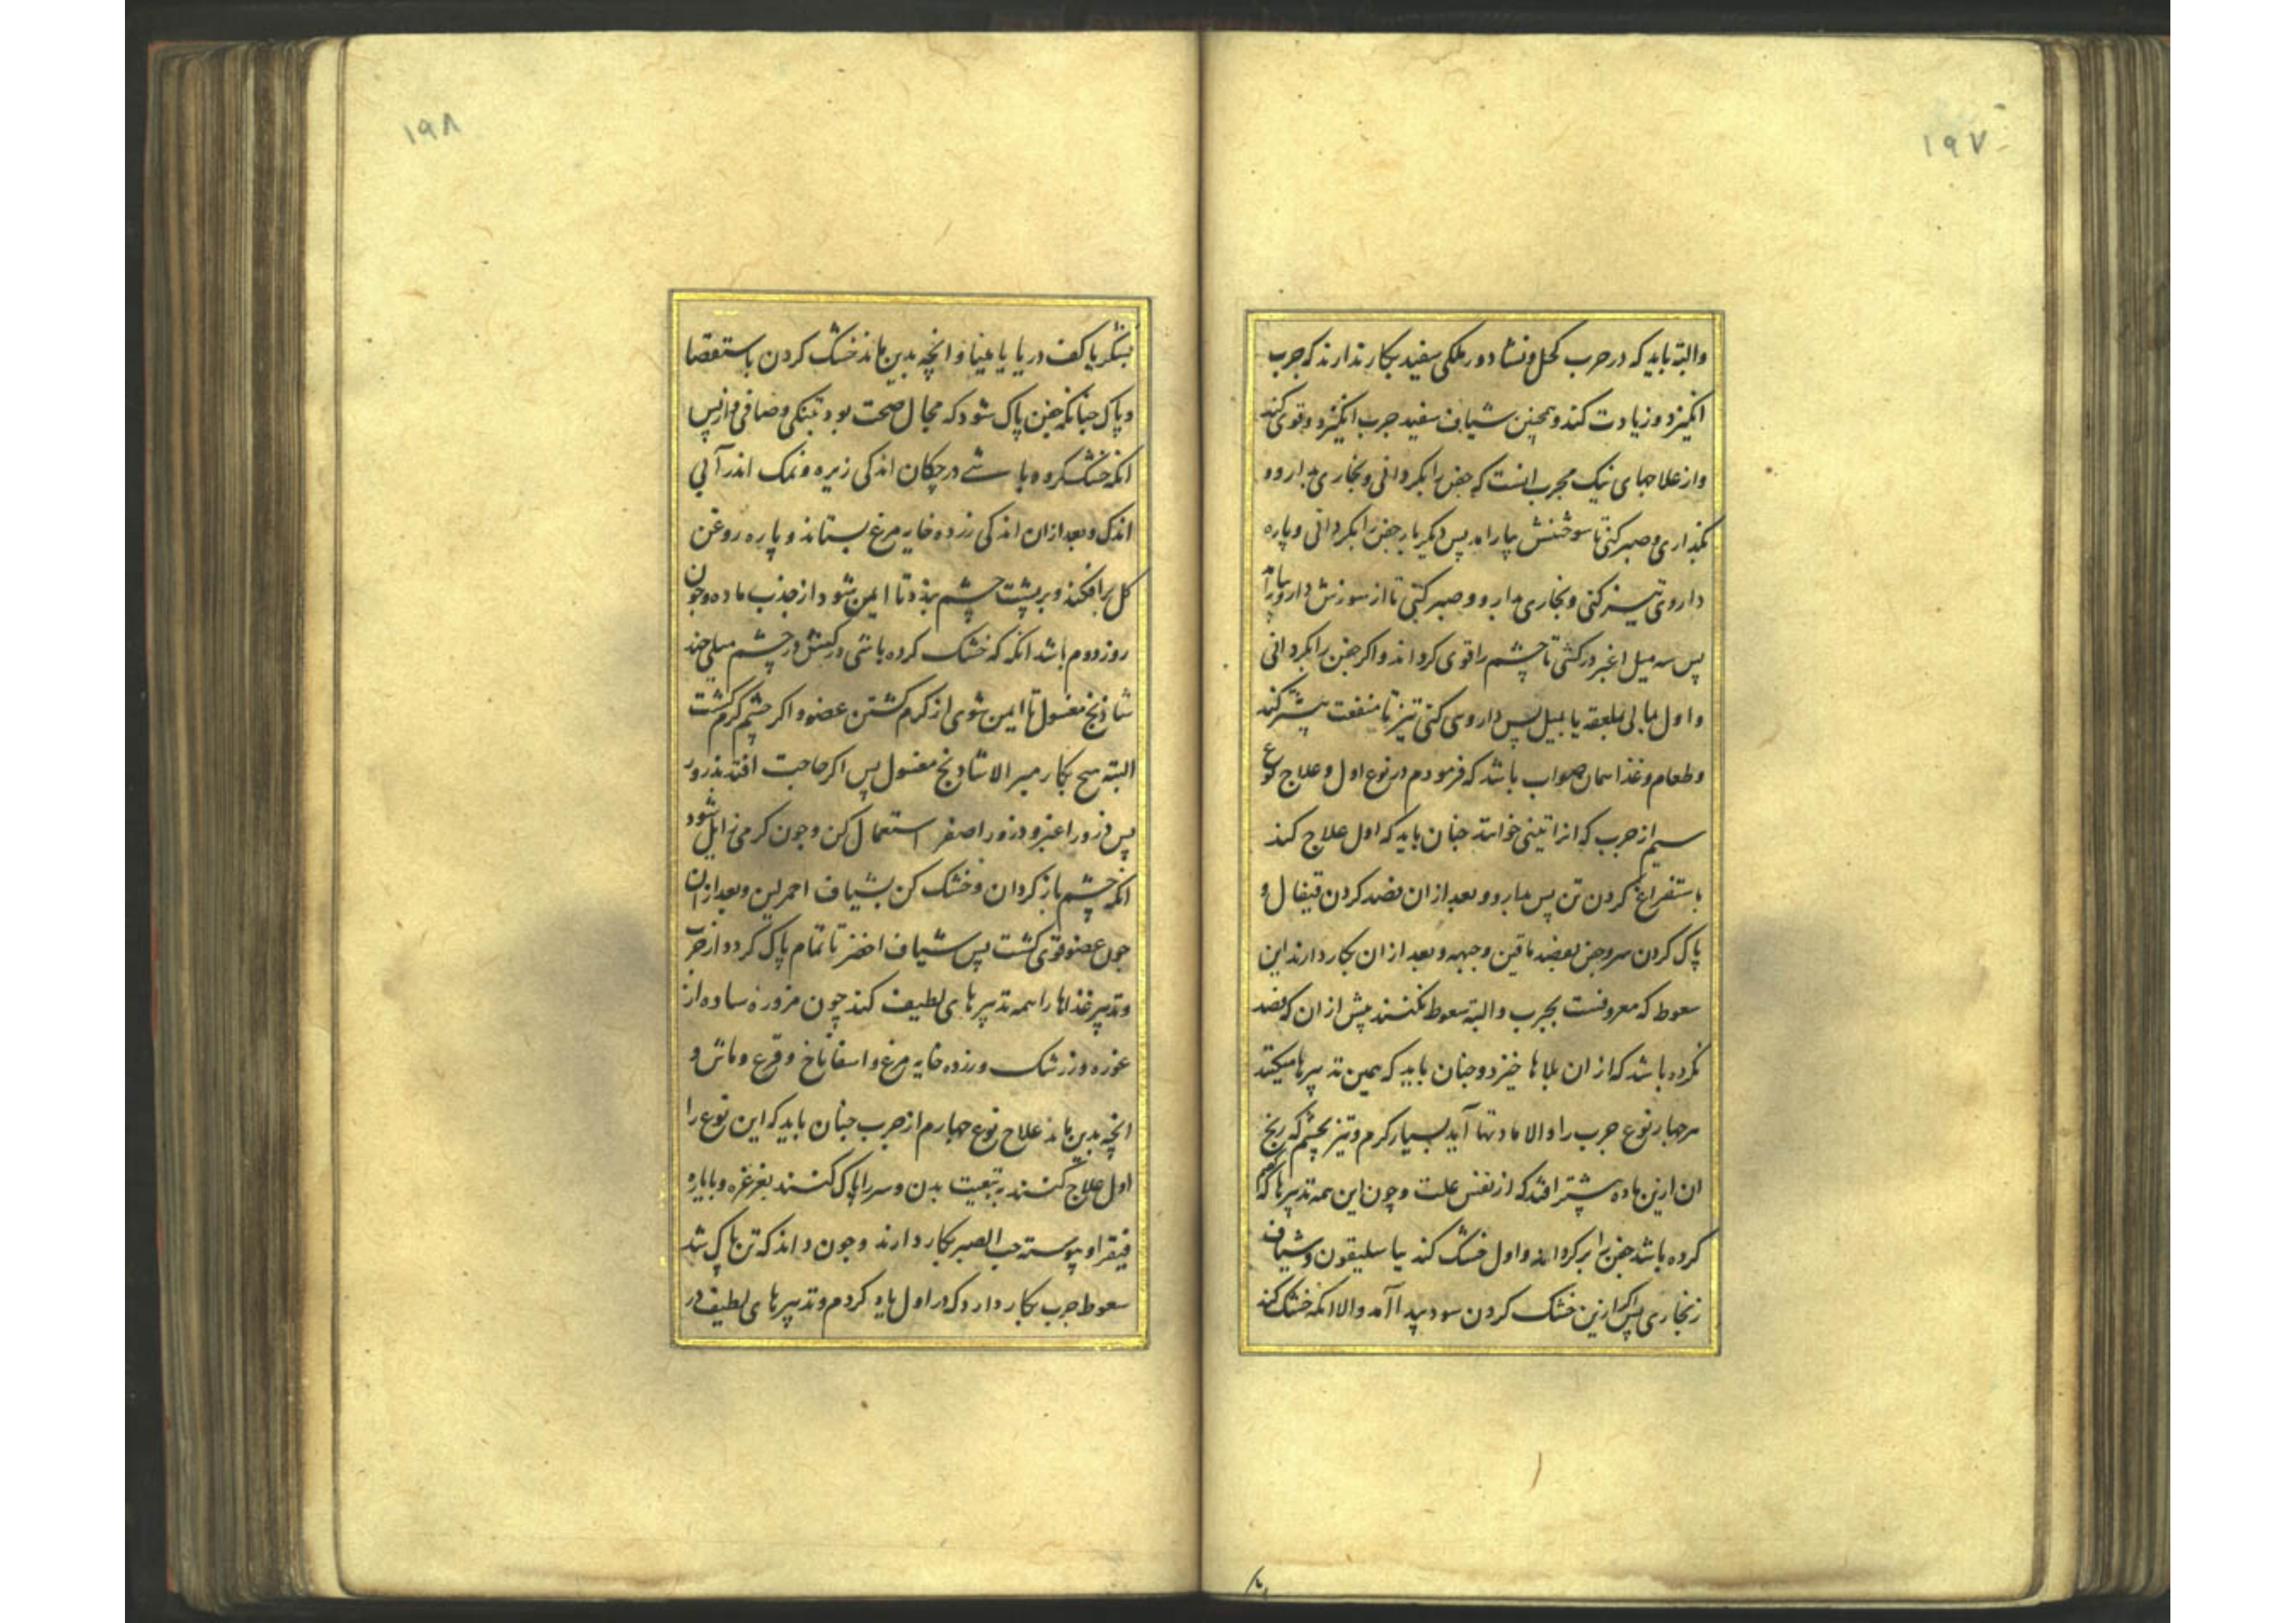 ۱۹۷
والبته باید که در جرب کحل و نشا دور ملکی سفید بکار ندارند که جرب
انگیزد و زیادت کند و همچنین شیاف سفید جرب انگیزد و قوی کند
واز علاجهای نیک مجرب انست که جفن را بکردانی و بخاری دارو
بگذاری و صبر کنی تا سوختنش بیارامد پس دیگر بار جفن را بکردانی و پاره
داروی تیز کنی و بخاری دارو و صبر کنی تا از سوزش دارو بیارامد
پس سه میل اغبر درکشی تا چشم را قوی کرداند و اکر جفن را بکردانی
و اول بمالی بملعقه یا بمیل پس داروی کنی تیز تا منفعت بیشتر کند
وطعام وغذا همان صواب باشد که فرمودم در نوع اول و علاج نوع
سیم از جرب که انرا تینی خوانند جنان باید که اول علاج کند
باستفراغ کردن تن پس بدارو و بعد از ان فصد کردن قیفال و
پاک کردن سر و جفن بفصد ماقین و جبهه و بعد از ان بکار دارند این
سعوط که معروفست بجرب والبته سعوط نکنند پیش از ان که فصد
نکرده باشد که از ان بلاها خیزد و جنان باید که همین تدبیرها میکنند
هر جهار نوع جرب را و الا مادتها آید بسیار کرم و تیز بچشم که رنج
ان ازین ماده بیشتر افتد که از نفس علت و چون این همه تدبیرها که گفتم
کرده باشد جفن را برکرداند و اول خشک کند بباسلیقون و شیاف
زنجاری پس اکر ازین خشک کردن سود پیدا آمد والا انکه خشک کند
۱۹۸
بشکر یا کف دریا یا مینا و انچه بدین ماند خشک کردن باستقصا
و پاک جنانکه جفن پاک شود که مجال صحت بود بتنکی و صافی و از پس
انکه خشک کرده باشی در چکان اندکی زیره و نمک اندر آبی
اندک و بعد از ان اندکی زرده خایه مرغ بستاند و پاره روغن
کل برافکند و بر پشت چشم نهد تا ایمن شود از جذب ماده و جون
روز دوم باشد انکه که خشک کرده باشی درکش در چشم میلی چند
شادنج مغسول تا ایمن شوی از کرم کشتن عضو و اکر چشم کرم کشت
البته هیچ بکار مبر الا شادنج مغسول پس اکر حاجت افتد بذرور
پس ذرور اغبر و ذرور اصفر استعمال کن و جون کرمی زایل شود
انکه چشم باز کردان و خشک کن بشیاف احمر لین و بعد از ان
جون عضو قوی کشت پس شیاف اخضر تا تمام پاک کردد از جرب
و تدبیر غذاها را همه تدبیرهای لطیف کند چون مزورهٔ ساده از
غوره و زرشک و زرده خایه مرغ و اسفاناخ و قرع و ماش و
انچه بدین ماند علاج نوع جهارم از جرب جنان باید که این نوع را
اول علاج کنند بتنقیت بدن و سر را پاک کنند بغرغره و بایاره
فیقرا و پیوسته حب الصبر بکار دارند و جون داند که تن پاک شد
سعوط جرب بکار دارد که در اول یاد کردم و تدبیرهای لطیف در